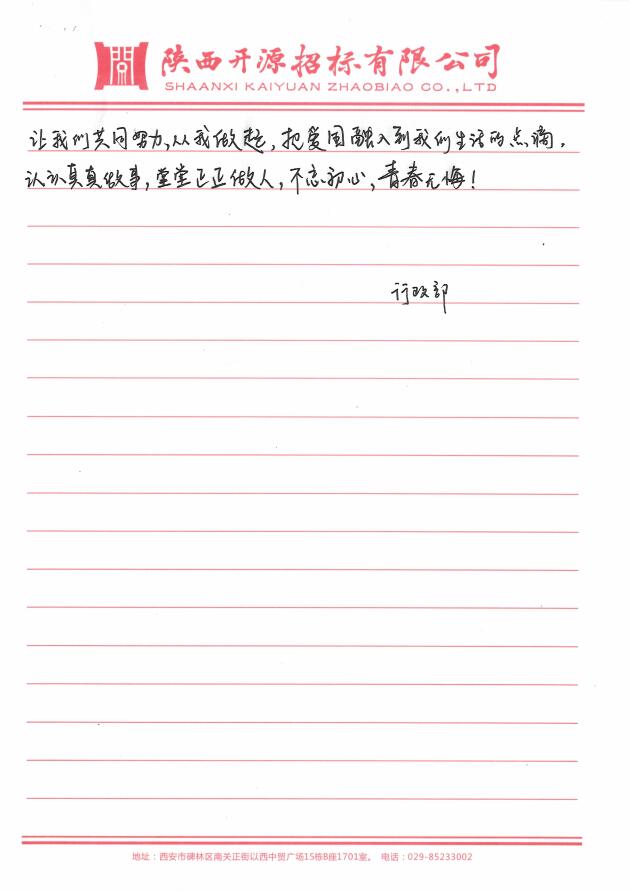 陕西开源招标有限公司
SHAANXI KAIYUAN ZHAOBIAO CO.,LTD
让我们共同努力,从我做起,把爱国融入到我们生活的点滴。
认认真真做事,堂堂正正做人,不忘初心,青春无悔!
行政部
地址:西安市碑林区南关正街以西中贸广场15栋B座1701室。 电话:029-85233002